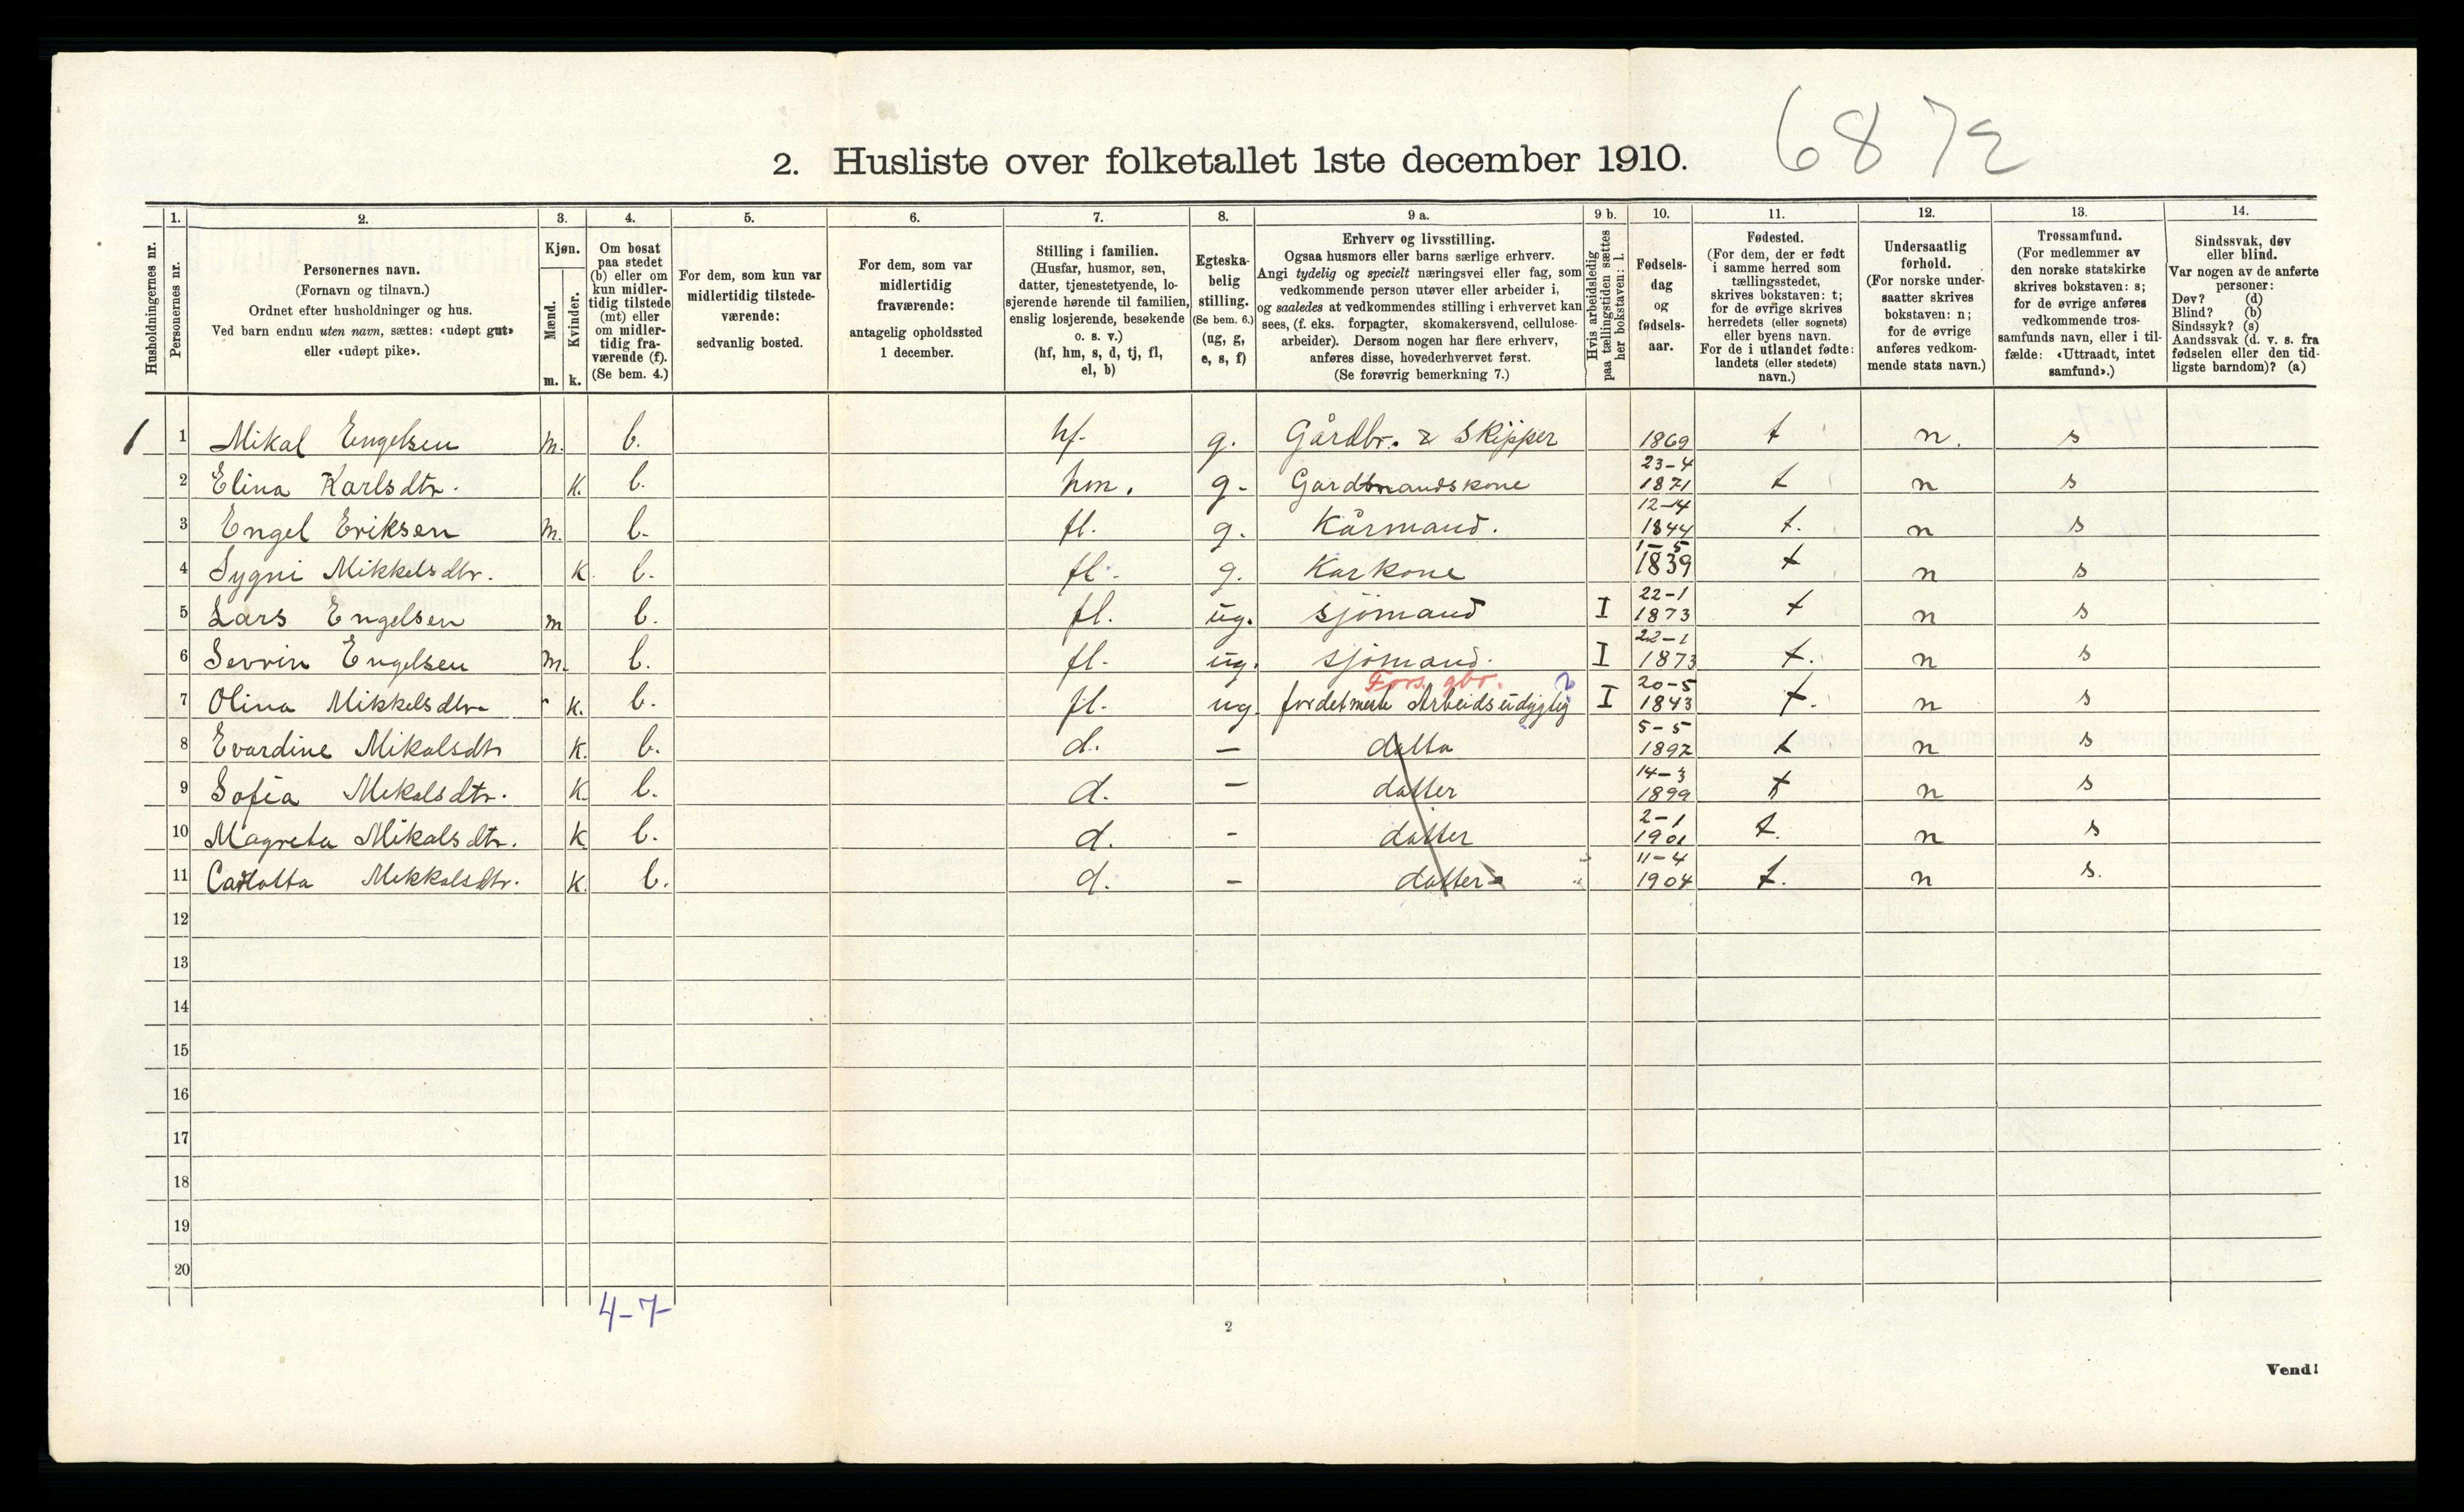 6872
2. Husliste over folketallet 1ste december 1910.
Husholdningernes nr.
1.
Personernes nr.
2.
Personernes navn.
(Fornavn og tilnavn.)
Ordnet efter husholdninger og hus.
Ved barn endnu uten navn, sættes: «udøpt gut»
eller «udøpt pike».
3.
Kjøn.
Mænd.
Kvinder.
m. k.
4.
Om bosat
paa stedet
(b) eller om
kun midler-
tidig tilstede
(mt) eller
om midler-
tidig fra-
værende (f).
(Se bem. 4.)
5.
For dem, som kun var
midlertidig tilstede-
værende:
sedvanlig bosted.
6.
For dem, som var
midlertidig
fraværende:
antagelig opholdssted
1 december.
7.
Stilling i familien.
(Husfar, husmor, søn,
datter, tjenestetyende, lo-
sjerende hørende til familien,
enslig losjerende, besøkende
o. s. v.)
(hf, hm, s, d, tj, fl,
el, b)
8.
Egteska-
belig
stilling.
(Se bem. 6.)
(ug, g,
e, s, f)
9 a.
Erhverv og livsstilling.
Ogsaa husmors eller barns særlige erhverv.
Angi tydelig og specielt næringsvei eller fag, som
vedkommende person utøver eller arbeider i,
og saaledes at vedkommendes stilling i erhvervet kan
sees, (f. eks. forpagter, skomakersvend, cellulose-
arbeider). Dersom nogen har flere erhverv,
anføres disse, hovederhvervet først.
(Se forøvrig bemerkning 7.)
9 b.
Hvis arbeidsledig
paa tællingstiden sættes
her bokstaven: l.
10.
Fødsels-
dag
og
fødsels-
aar.
11.
Fødested.
(For dem, der er født
i samme herred som
tællingsstedet,
skrives bokstaven: t;
for de øvrige skrives
herredets (eller sognets)
eller byens navn.
For de i utlandet fødte:
landets (eller stedets)
navn.)
12.
Undersaatlig
forhold.
(For norske under-
saatter skrives
bokstaven: n;
for de øvrige
anføres vedkom-
mende stats navn.)
13.
Trossamfund.
(For medlemmer av
den norske statskirke
skrives bokstaven: s;
for de øvrige anføres
vedkommende tros-
samfunds navn, eller i til-
fælde: «Uttraadt, intet
samfund».)
14.
Sindssvak, døv
eller blind.
Var nogen av de anførte
personer:
Døv? (d)
Blind? (b)
Sindssyk? (s)
Aandssvak (d. v. s. fra
fødselen eller den tid-
ligste barndom)? (a)
1 1 Mikal Engelsen m. b. hf. g. Gårdbr. & Skipper 1869 t n. s
2 Elina Karlsdtr. K. b. hm. g. Gardmandskone 23-4 1871 t n s
3 Engel Eriksen m. b. fl. g. Kårmand. 12-14 1844 t. n s
4 Sygni Mikkelsdtr. K. b. fl. g. Karkone 1-5 1839 t n s
5 Lars Engelsen m b. fl. ug. sjömand I 22-1 1873 t n s
6 Sevrin Engelsen m. b. fl. ug. sjömand. I 22-1 1873 t. n s
Fors. gbr.
7 Olina Mikkelsdtr K. b. fl. ug. fordetmeste Arbeidsudygtig I 20-5 1843 t. n s
8 Evardine Mikalsdtr K. b. d. — datta 5-5 1897 t n s
9 Sofia Mekalsdtr. K. b. d. — datter 14-3 1899 t n s
10 Magreta Mikalsdtr. K b. d. - datter 2-1 1901 t. n s
11 Carlotta Mekkalsdtr. K. b. d. - datter 11-4 1904 t. n s.
12
13
14
15
16
17
18
19
20
4-7-
2
Vend!